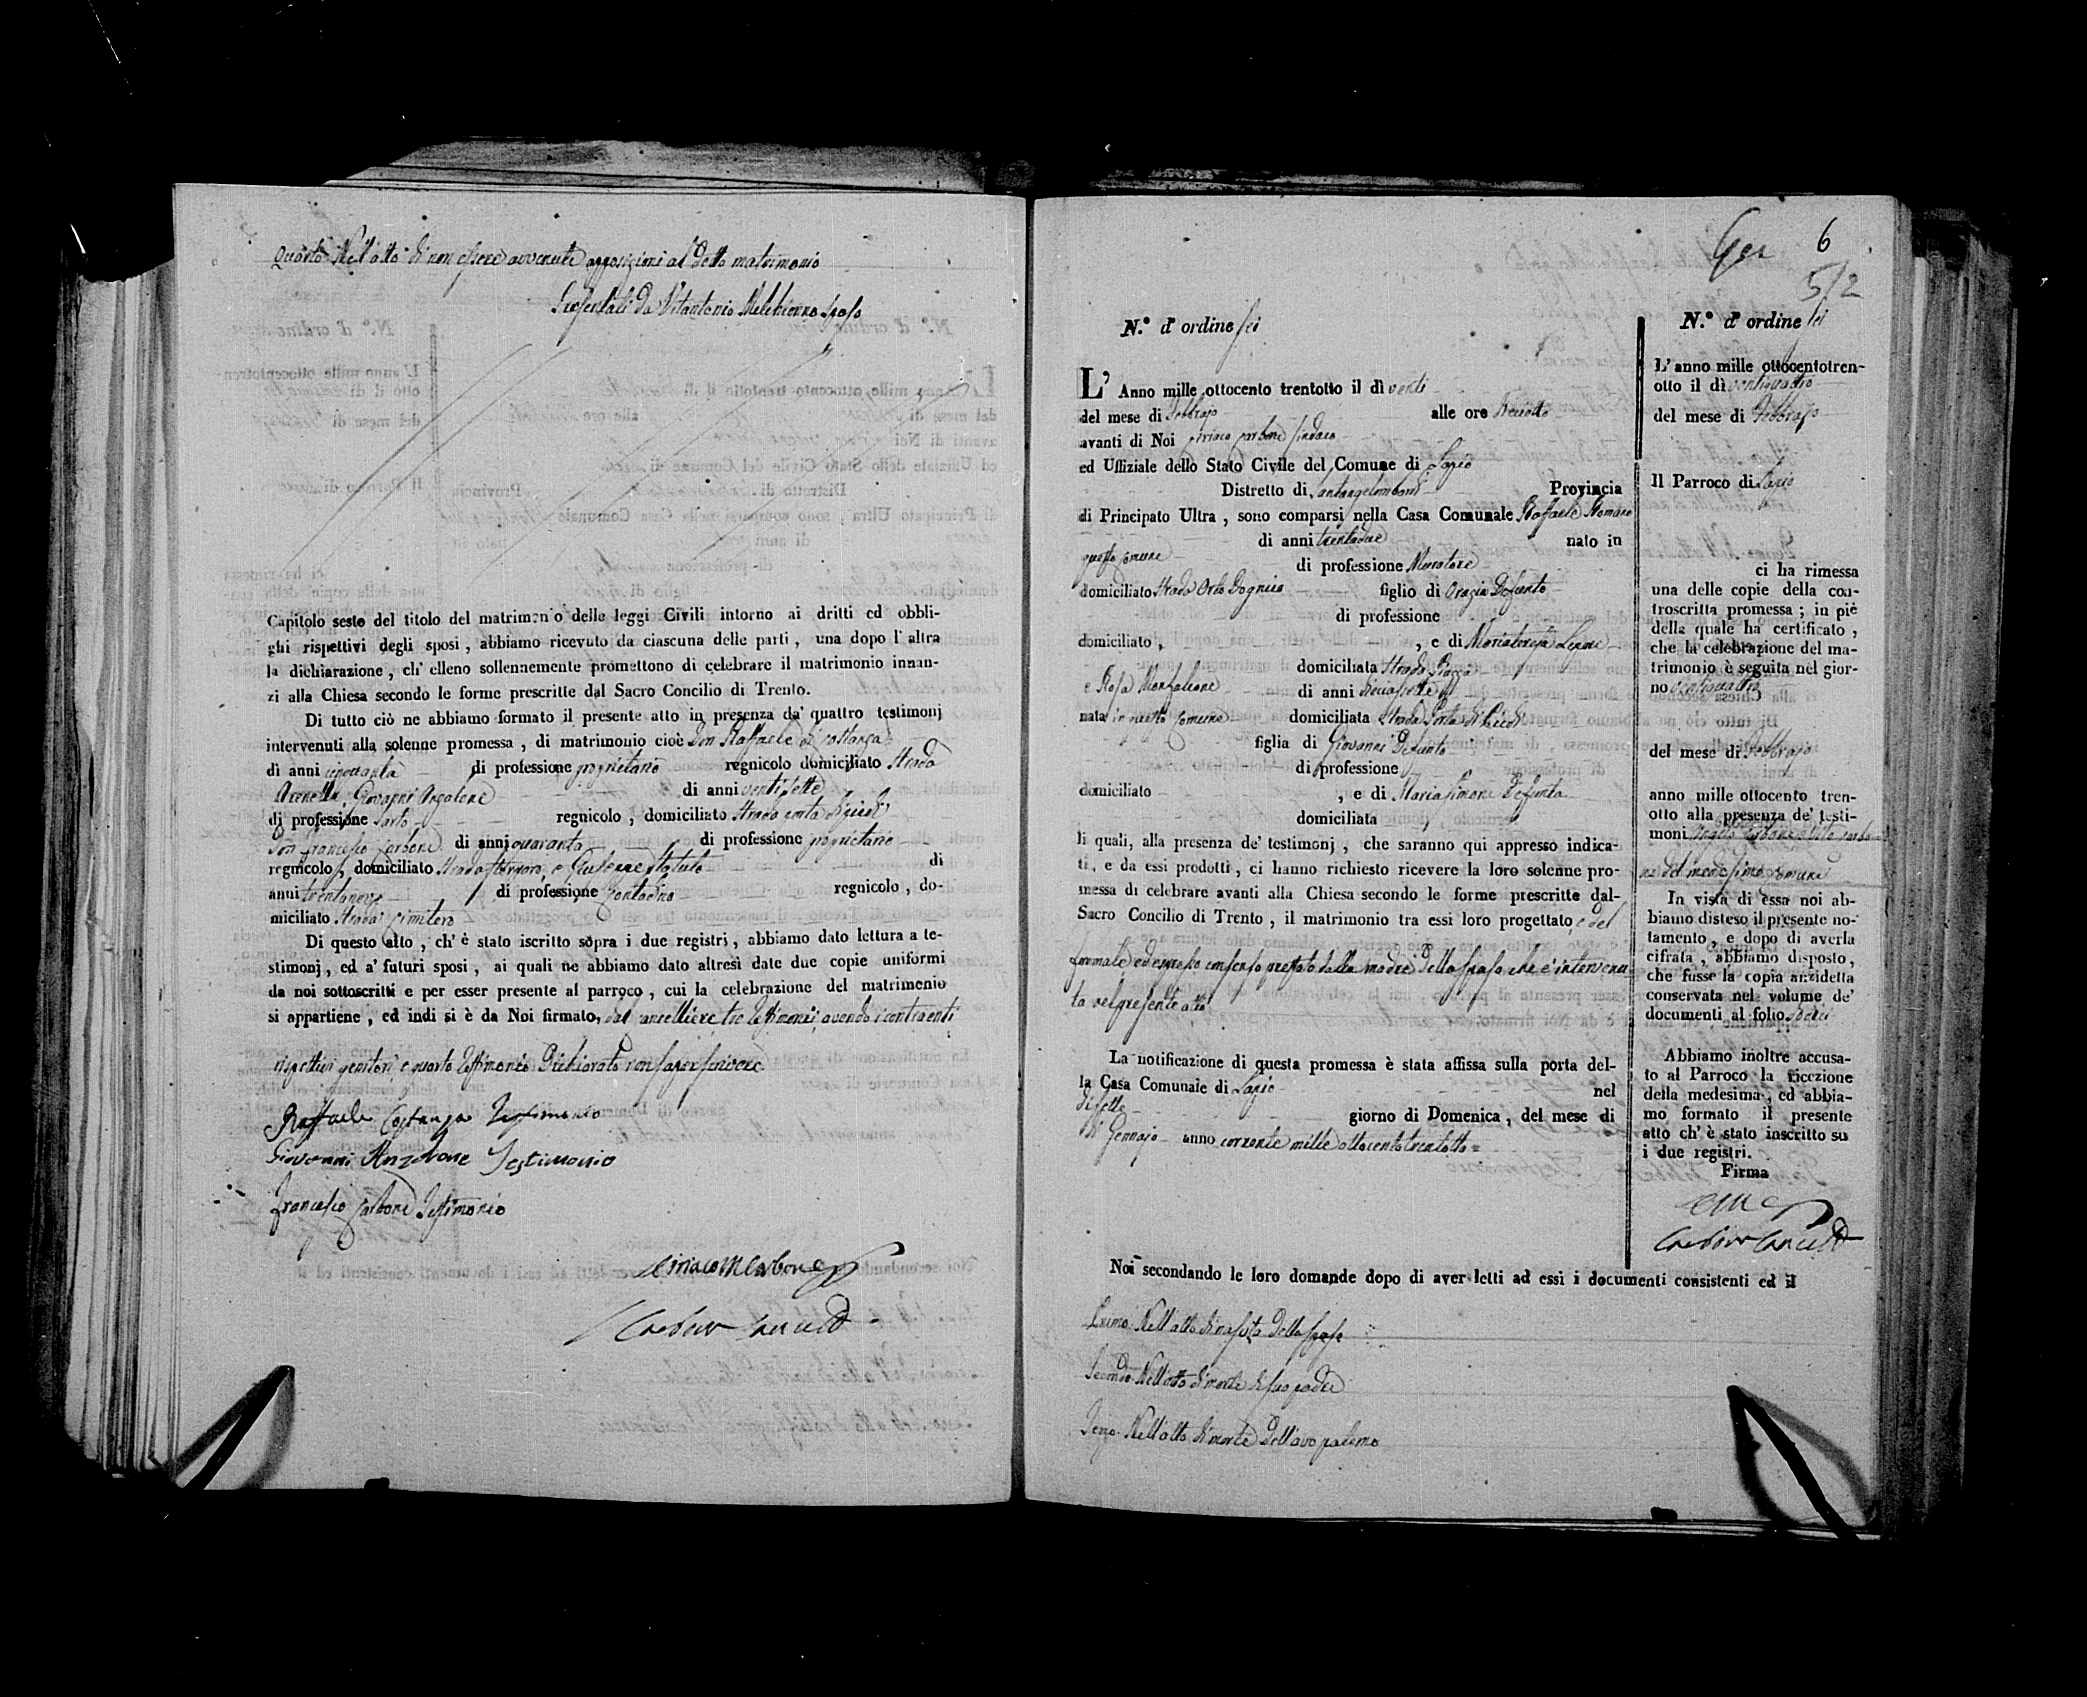 Quarto Nell'atto di non essere avvenute opposizioni al detto matrimonio
Presentati da Vitantonio Melchionno sposo
Capitolo sesto del titolo del matrimonio delle leggi Civili intorno ai dritti ed obbli-
ghi rispettivi degli sposi, abbiamo ricevuto da ciascuna delle parti, una dopo l'altra
la dichiarazione, ch'elleno sollennemente promettono di celebrare il matrimonio innan-
zi alla Chiesa secondo le forme prescritte dal Sacro Concilio di Trento.
Di tutto ciò ne abbiamo formato il presente atto in presenza da' quattro testimonj
intervenuti alla solenne promessa, di matrimonio cioè Don Raffaele di Costanza
di anni cinquanta di professione proprietario regnicolo domiciliato Strada
Giovanni Anzalone di anni ventisette
di professione Sarto regnicolo, domiciliato Strada porta di
Don Francesco Carbone di anni quaranta di professione proprietario
regnicolo, domiciliato Strada e Giuseppe Statuto di
anni trentanove di professione Contadino regnicolo, do-
miciliato Strada Cimitero
Di questo atto, ch'è stato iscritto sopra i due registri, abbiamo dato lettura a te-
stimonj, ed a' futuri sposi, ai quali ne abbiamo dato altresì date due copie uniformi
da noi sottoscritti e per esser presente al parroco, cui la celebrazione del matrimonio
si appartiene, ed indi si è da Noi firmato, dal cancelliere tre testimonii, avendo i contraenti
rispettivi genitori, e quarto testimonio dichiarato non saper scrivere
Raffaele Costanza Testimonio
Giovanni Anzalone Testimonio
Francesco Carbone Testimonio
Ciriaco M Carbone
6
5/2
N.º d'ordine sei
L'Anno mille ottocento trentotto il dì venti
del mese di Febbrajo alle ore
avanti di Noi Ciriaco Carbone Sindaco
ed Uffiziale dello Stato Civile del Comune di Lapio
Distretto di Santangelombardi Provincia
di Principato Ultra, sono comparsi nella Casa Comunale Raffaele Romano
di anni trentadue nato in
questo Comune di professione Muratore
domiciliato Strada Orto figlio di Orazio Defunto
di professione
domiciliato, e di Mariateresa Lepore
domiciliata Strada Piazza
e Rosa Monfalcone di anni diciassette
nata in questo Comune domiciliata Strada Porta di
figlia di Giovanni Defunto
di professione
domiciliato, e di Maria Simone Defunta
domiciliata
li quali, alla presenza de' testimonj, che saranno qui appresso indica-
ti, e da essi prodotti, ci hanno richiesto ricevere la loro solenne pro-
messa di celebrare avanti alla Chiesa secondo le forme prescritte dal-
Sacro Concilio di Trento, il matrimonio tra essi loro progettato, e del
formale ed espresso consenso prestato dalla madre dello sposo che è intervenu
ta nel presente atto
La notificazione di questa promessa è stata affissa sulla porta del-
la Casa Comunale di Lapio nel
giorno di Domenica, del mese di
Gennajo anno corrente mille ottocento trentotto=
Noi secondando le loro domande dopo di aver letti ad essi i documenti consistenti ed il
Primo Nell'atto di nascita dello sposo
Secondo Nell'atto di morte di suo padre
Terzo Nell'atto di morte dell'avo paterno
N.º d'ordine sei
L'anno mille ottocentotren-
otto il dì ventiquattro
del mese di Febbrajo
Il Parroco di Lapio
ci ha rimessa
una delle copie della con-
troscritta promessa; in piè
della quale ha certificato,
che la celebrazione del ma-
trimonio è seguita nel gior-
no ventiquattro
del mese di Febbrajo
anno mille ottocento tren-
otto alla presenza de' testi-
moni
ne del medesimo Comune
In vista di essa noi ab-
biamo disteso il presente no-
tamento, e dopo di averla
cifrata, abbiamo disposto,
che fusse la copia anzidetta
conservata nel volume de'
documenti al folio
Abbiamo inoltre accusa-
to al Parroco la ricezione
della medesima, ed abbia-
mo formato il presente
atto ch'è stato inscritto su
i due registri.
Firma